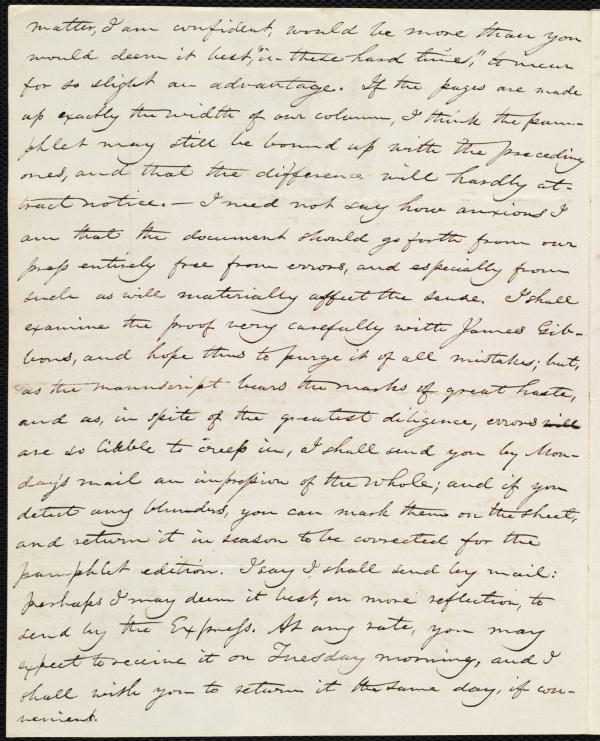 matter, I am confident, would be more than you
would deem it best, "in these hard times," to incur
for so slight an advantage. If the pages are made
up exactly the width of our column, I think the pam-
phlet may still be bound up with the preceding
ones, and that the difference will hardly at-
tract notice. — I need not say how anxious I
am that the document should go forth from our
press entirely free from errors, and especially from
such as will materially affect the sense. I shall
examine the proof very carefully with James Gib-
bons, and hope thus to purge it of all mistakes; but,
as the manuscript bears the marks of great haste,
and as, in spite of the greatest diligence, errors will
are so liable to creep in, I shall send you by Mon-
day's mail an impression of the whole; and if you
detect any blunders, you can mark them on the sheet,
and return it in season to be corrected for the
pamphlet edition. I say I shall send by mail:
perhaps I may deem it best, on more reflection, to
send by the Express. At any rate, you may
expect to receive it on Tuesday morning, and I
shall wish you to return it the same day, if con-
venient.